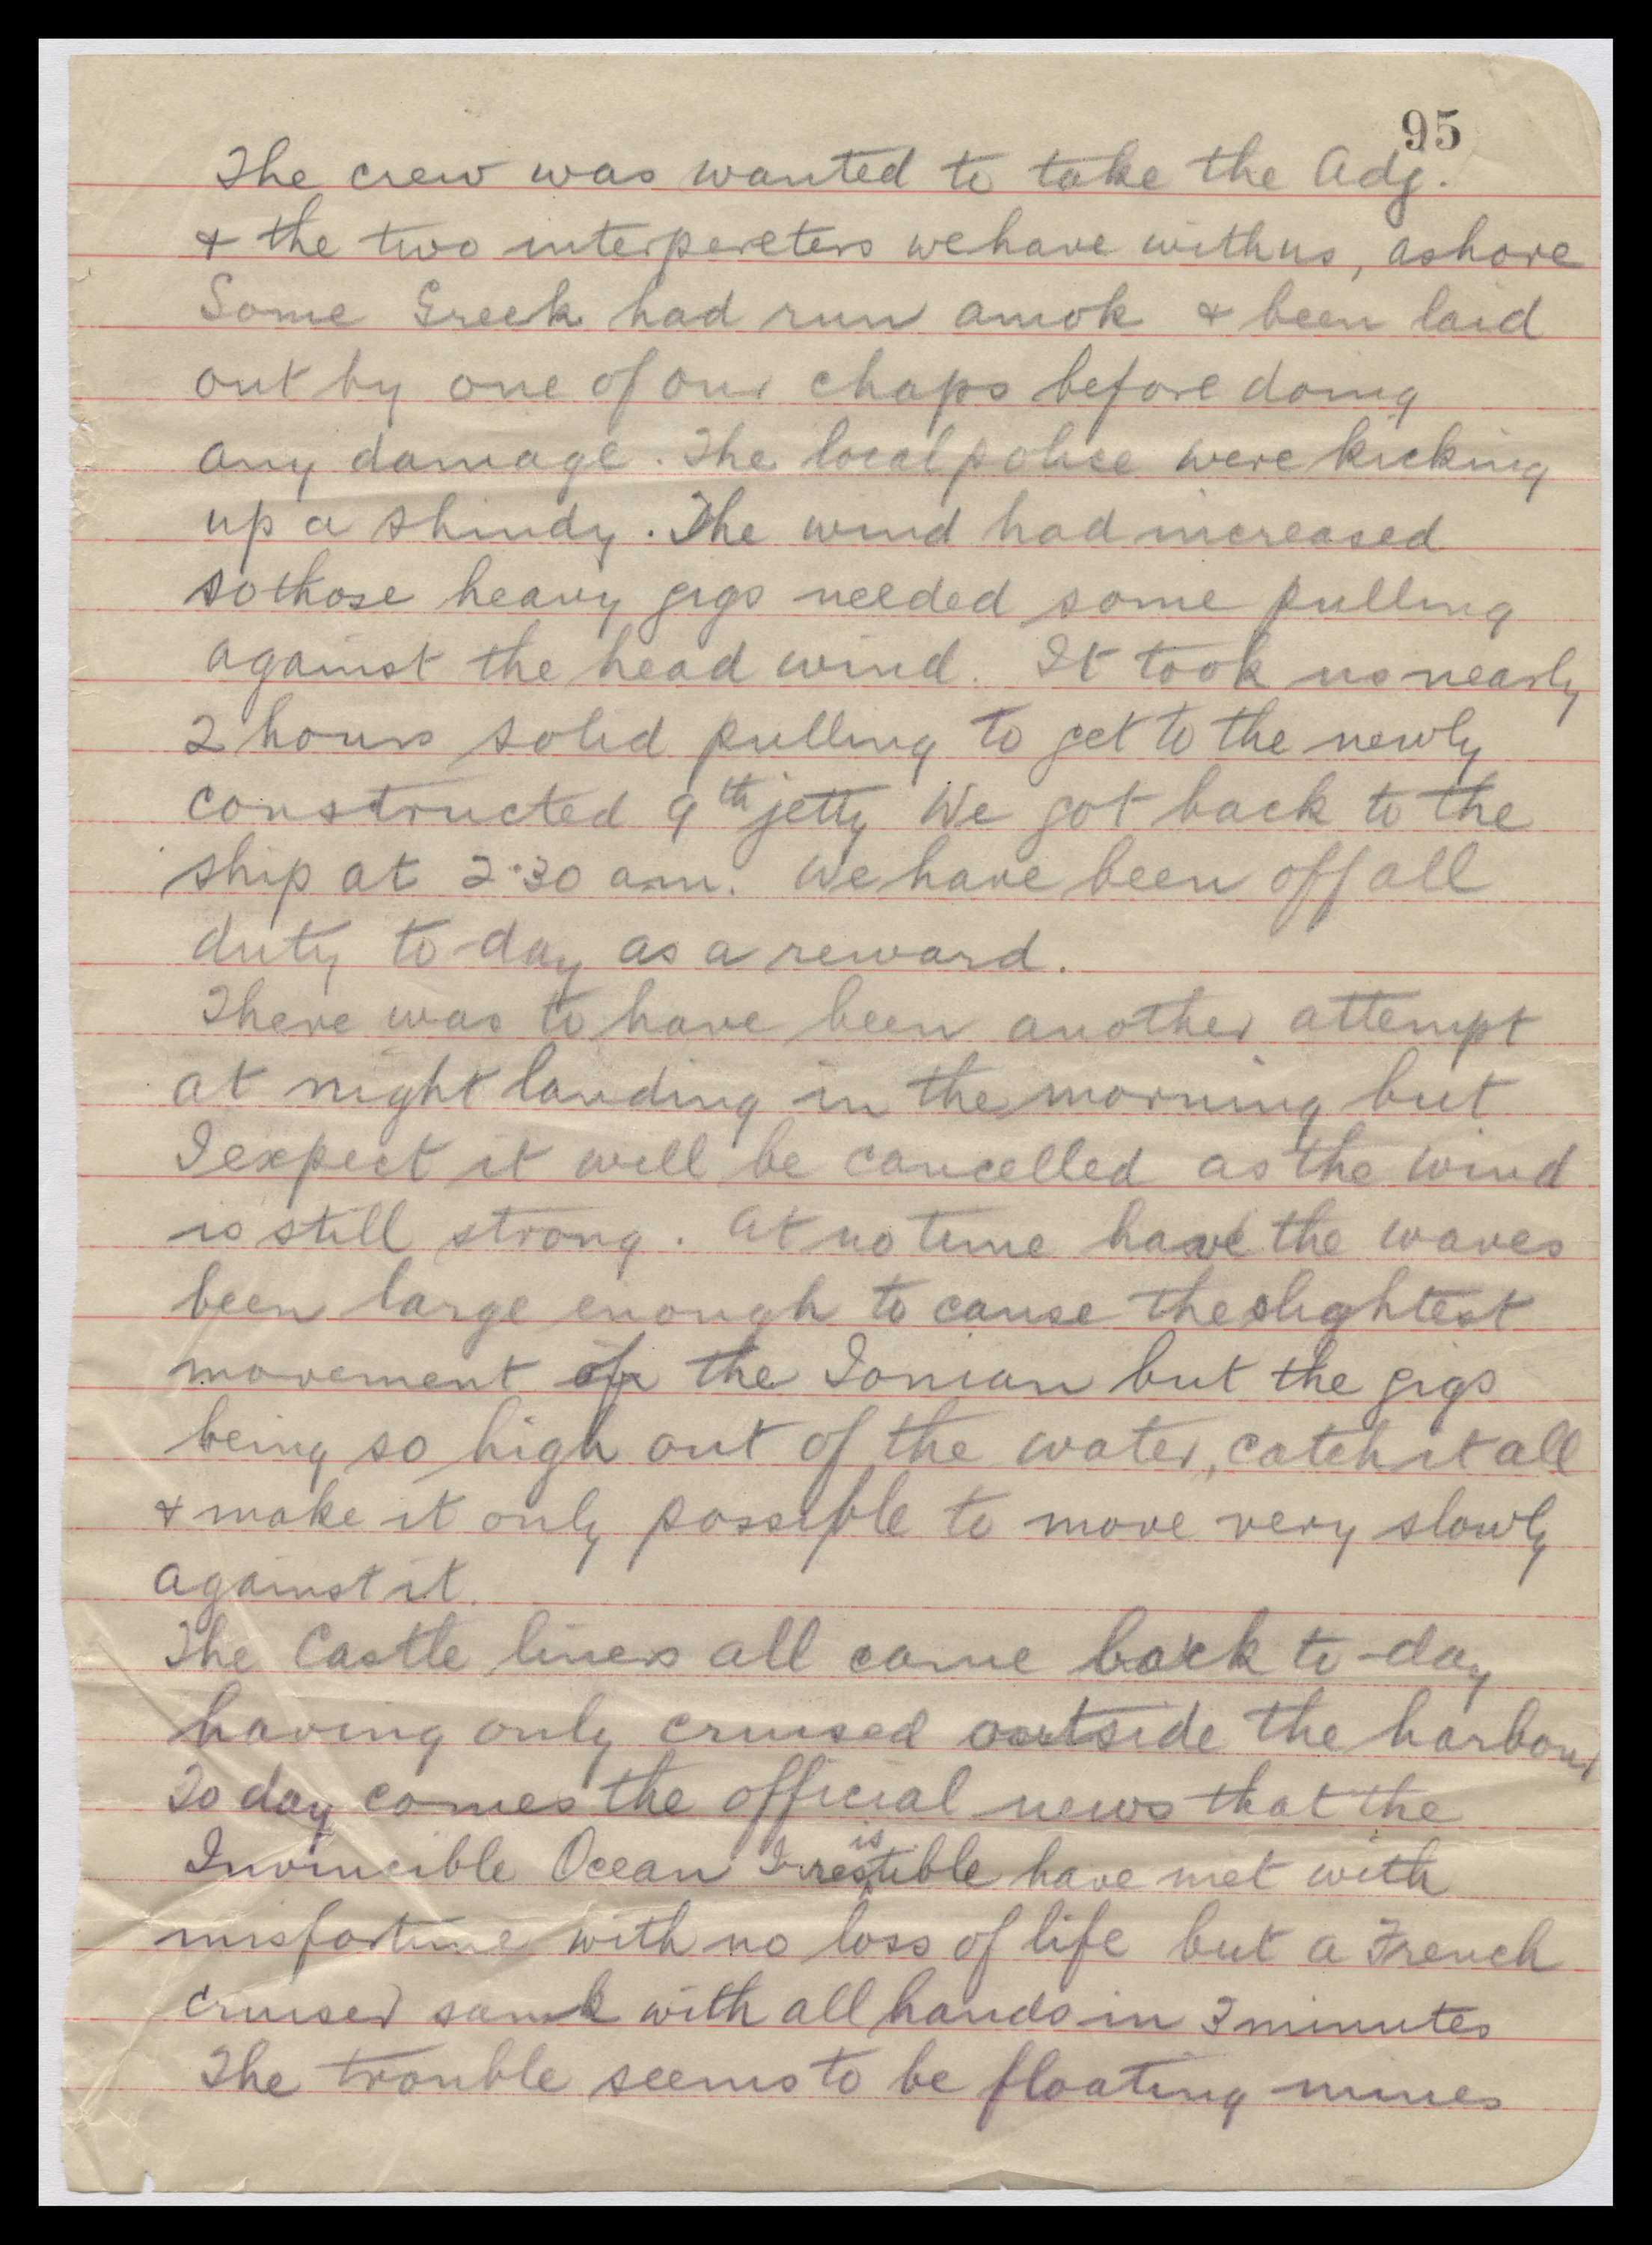 95
The crew was wanted to take the Adj.
& the two interpereters we have with us, ashore
Some Greek had run amok & been laid
out by one of our chaps before doing
any damage. The local police were kicking
up a shindy. The wind had increased
so those heavy gigs needed some pulling
against the head wind. It took us nearly
2 hours solid pulling to get to the newly
constructed 9th jetty We got back to the
ship at 2.30 a.m. We have been off all
duty to-day as a reward.
There was to have been another attempt
at night landing in the morning but
I expect it will be cancelled as the wind
is still strong. At no time have the waves
been large enough to cause the slightest
movement of the Ionian but the gigs
being so high out of the water, catch it all
& make it only possible to move very slowly
against it.
The Castle liners all came back to-day
having only cruised outside the harbour
To day comes the official news that the
Invincible Ocean Irresistible have met with
misfortune with no loss of life but a French
cruiser sank with all hands in 3 minutes
The trouble seems to be floating mines